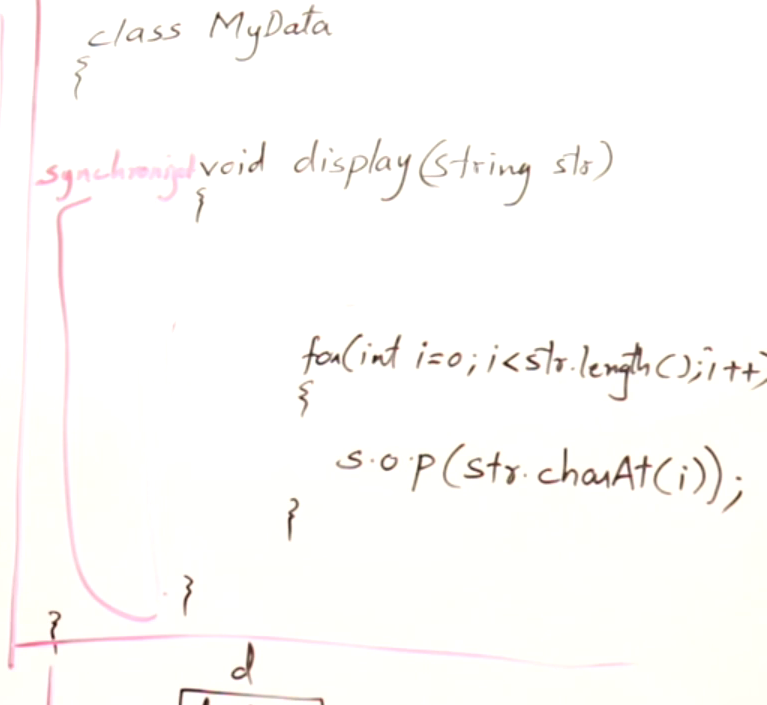 class MyData
{
synchronized void display(string str)
{
for(int i=0; i<str.length(); i++)
{
s.o.p(str.charAt(i));
}
}
}
d